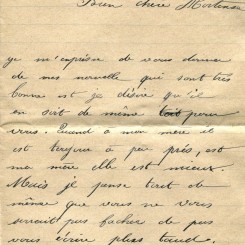 Bien chère Hortense
je m'empresse de vous donner
de mes nouvelle qui sont très
bonne et je désire qu'il
en soit de même pour
vous. Quand à mon mère il
est toujours à peu près, est
ma mère elle est mieux.
Mais je pense tout de
même que vous ne vous
serrait pas facher de pas
vous écrire plus tard.